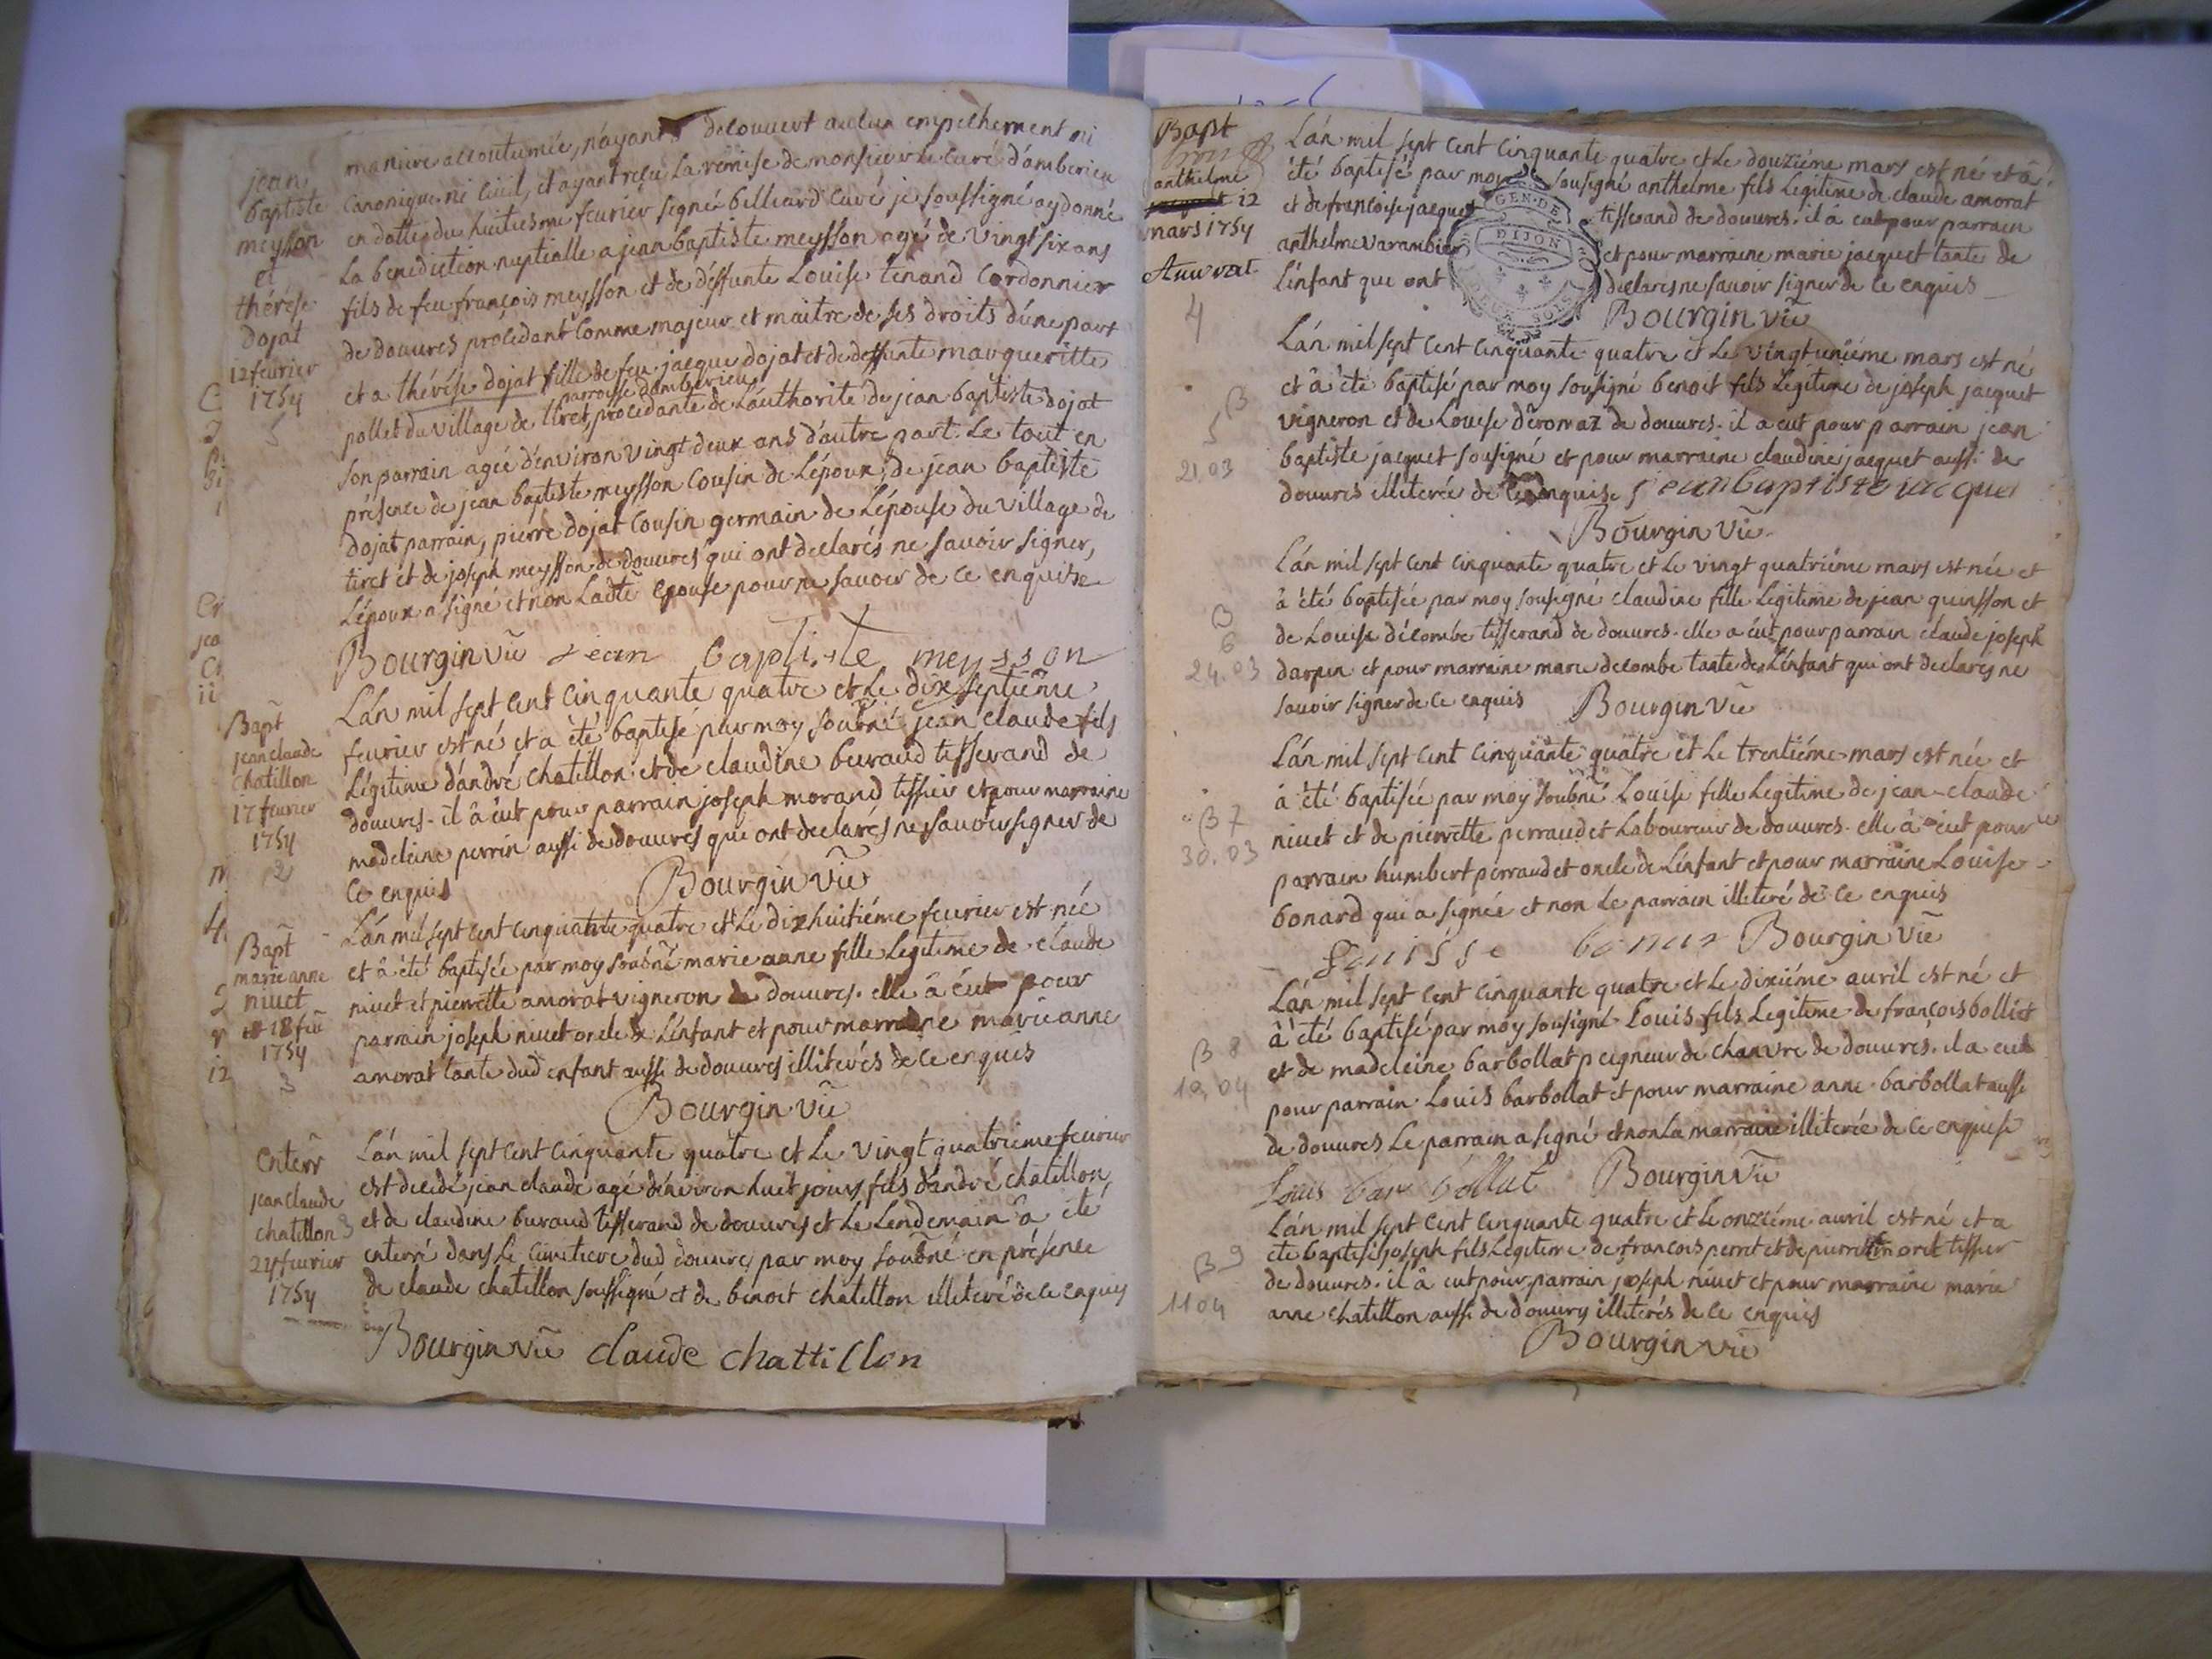 jean
baptiste
meysson
et
thérése
dojat
12 feurier
1754
maniere accoutumée, n'ayant decouuert aucun empechement ni
canonique ni ciuil, et ayant reçu La remise de monsieur Le curé d'amberieu
en datte du huitiesme feurier signé billiard curé je soussigné ay donné
La benediction nuptialle a jean baptiste meysson agé de vingt six ans
fils de feu françois meysson et de deffunte Louise tenand cordonnier
de douures procedant comme majeur et maitre de ses droits d'une part
et a thérése dojat fille de feu jacque dojat et de deffunte margueritte
parroisse damberieu
pollet du village de tiret, procedante de L'authorité de jean baptiste dojat
son parrain agée d'environ vingt deux ans d'autre part. Le tout en
présence de jean baptiste meysson cousin de L'époux, de jean baptiste
dojat parrain, pierre dojat cousin germain de L'épouse du village de
tiret et de joseph meysson de douures qui ont declarés ne sauoir signer,
L'époux a signé et non Ladte epouse pour ne sauoir de ce enquise
Bourgin vic jean baptiste meysson
Bapt
jean claude
chatillon
17 feurier
1754
2
L'an mil sept cent cinquante quatre et Le dix septiéme
feurier est né et a été baptisé par moy soubné jean claude fils
Légitime d'andré chatillon et de claudine buraud tisserand de
douures. il â eut pour parrain joseph morand tissier et pour marraine
madeleine perrin aussi de douures qui ont declarés ne sauoir signer de
ce enquis Bourgin vic
Bapt
marie anne
niuet
18 feu
1754
3
L'an mil sept cent cinquante quatre et Le dixhuitiéme feurier est née
et â été baptisée par moy soubné marie anne fille Legitime de claude
niuet et pierrette amorat vigneron de douures. elle â eut pour
parrain joseph niuet oncle de L'enfant et pour marraine marie anne
amorat tante dud enfant aussi de douures illiterés de ce enquis
Bourgin vic
Enterr
jean claude
chatillon 3
24 feurier
1754
L'an mil sept cent cinquante quatre et Le vingt quatrieme feurier
est decedé jean claude agé d'enuiron huit jours fils d'andré chatillon,
et de claudine buraud tisserand de douures et Le Lendemain â été
enterré dans Le cimetiere dud douures par moy soubné en présence
de claude chatillon soussigné et de benoit chatillon illiteré de ce enquis
Bourgin vic claude chattillon
Bapt
anthelme
12
mars 1754
4
L'an mil sept cent cinquante quatre et Le douziéme mars est né et â
été baptisé par moy sousigné anthelme fils Legitime de claude amorat
et de françoise jacquet tisserand de douures. il â eut pour parrain
anthelme varambier et pour marraine marie jacquet tante de
L'enfant qui ont declarés ne sauoir signer de ce enquis
GEN. DE DIJON
Bourgin vic
B
5
21.03
L'an mil sept cent cinquante quatre et Le vingt uniéme mars est né
et â été baptisé par moy sousigné benoit fils Légitime de joseph jacquet
vigneron et de Louise déromaz de douures. il a eut pour parrain jean
baptiste jacquet sousigné et pour marraine claudine jacquet aussi de
douures illiterée de ce enquise jean baptiste jacquet
Bourgin vic
B
6
24.03
L'an mil sept cent cinquante quatre et Le vingt quatriéme mars est née et
â été baptisée par moy sousigné claudine fille Legitime de jean quinsson et
de Louise décombe tisserand de douures. elle a eut pour parrain claude joseph
darpin et pour marraine marie decombe tante de L'enfant qui ont declarés ne
sauoir signer de ce enquis Bourgin vic
B 7
30.03
L'an mil sept cent cinquante quatre et Le trentiéme mars est née et
â été baptisée par moy soubné Louise fille Legitime de jean-claude
niuet et de pierrette perraudet Laboureur de douures. elle â eut pour
parrain humbert perraudet oncle de L'enfant et pour marraine Louise
bonard qui a signée et non Le parrain illiteré de ce enquis
Louisse bonar Bourgin vic
B 8
10.04
L'an mil sept cent cinquante quatre et Le dixiéme auril est né et
â été baptisé par moy sousigné Louis fils Legitime de françois bolliet
et de madeleine barbollat peigneur de chanvre de douures. il a eut
pour parrain Louis barbollat et pour marraine anne barbollat aussi
de douures Le parrain a signé et non La marraine illiterée de ce enquise
Louis bar bollat Bourgin vic
B 9
11 04
L'an mil sept cent cinquante quatre et Le onziéme auril est né et a
été baptisé joseph fils Légitime de françois perret et de pierrette morel tissier
de douures. il â eut pour parrain joseph niuet et pour marraine marie
anne chatillon aussi de douures illiterés de ce enquis
Bourgin vic